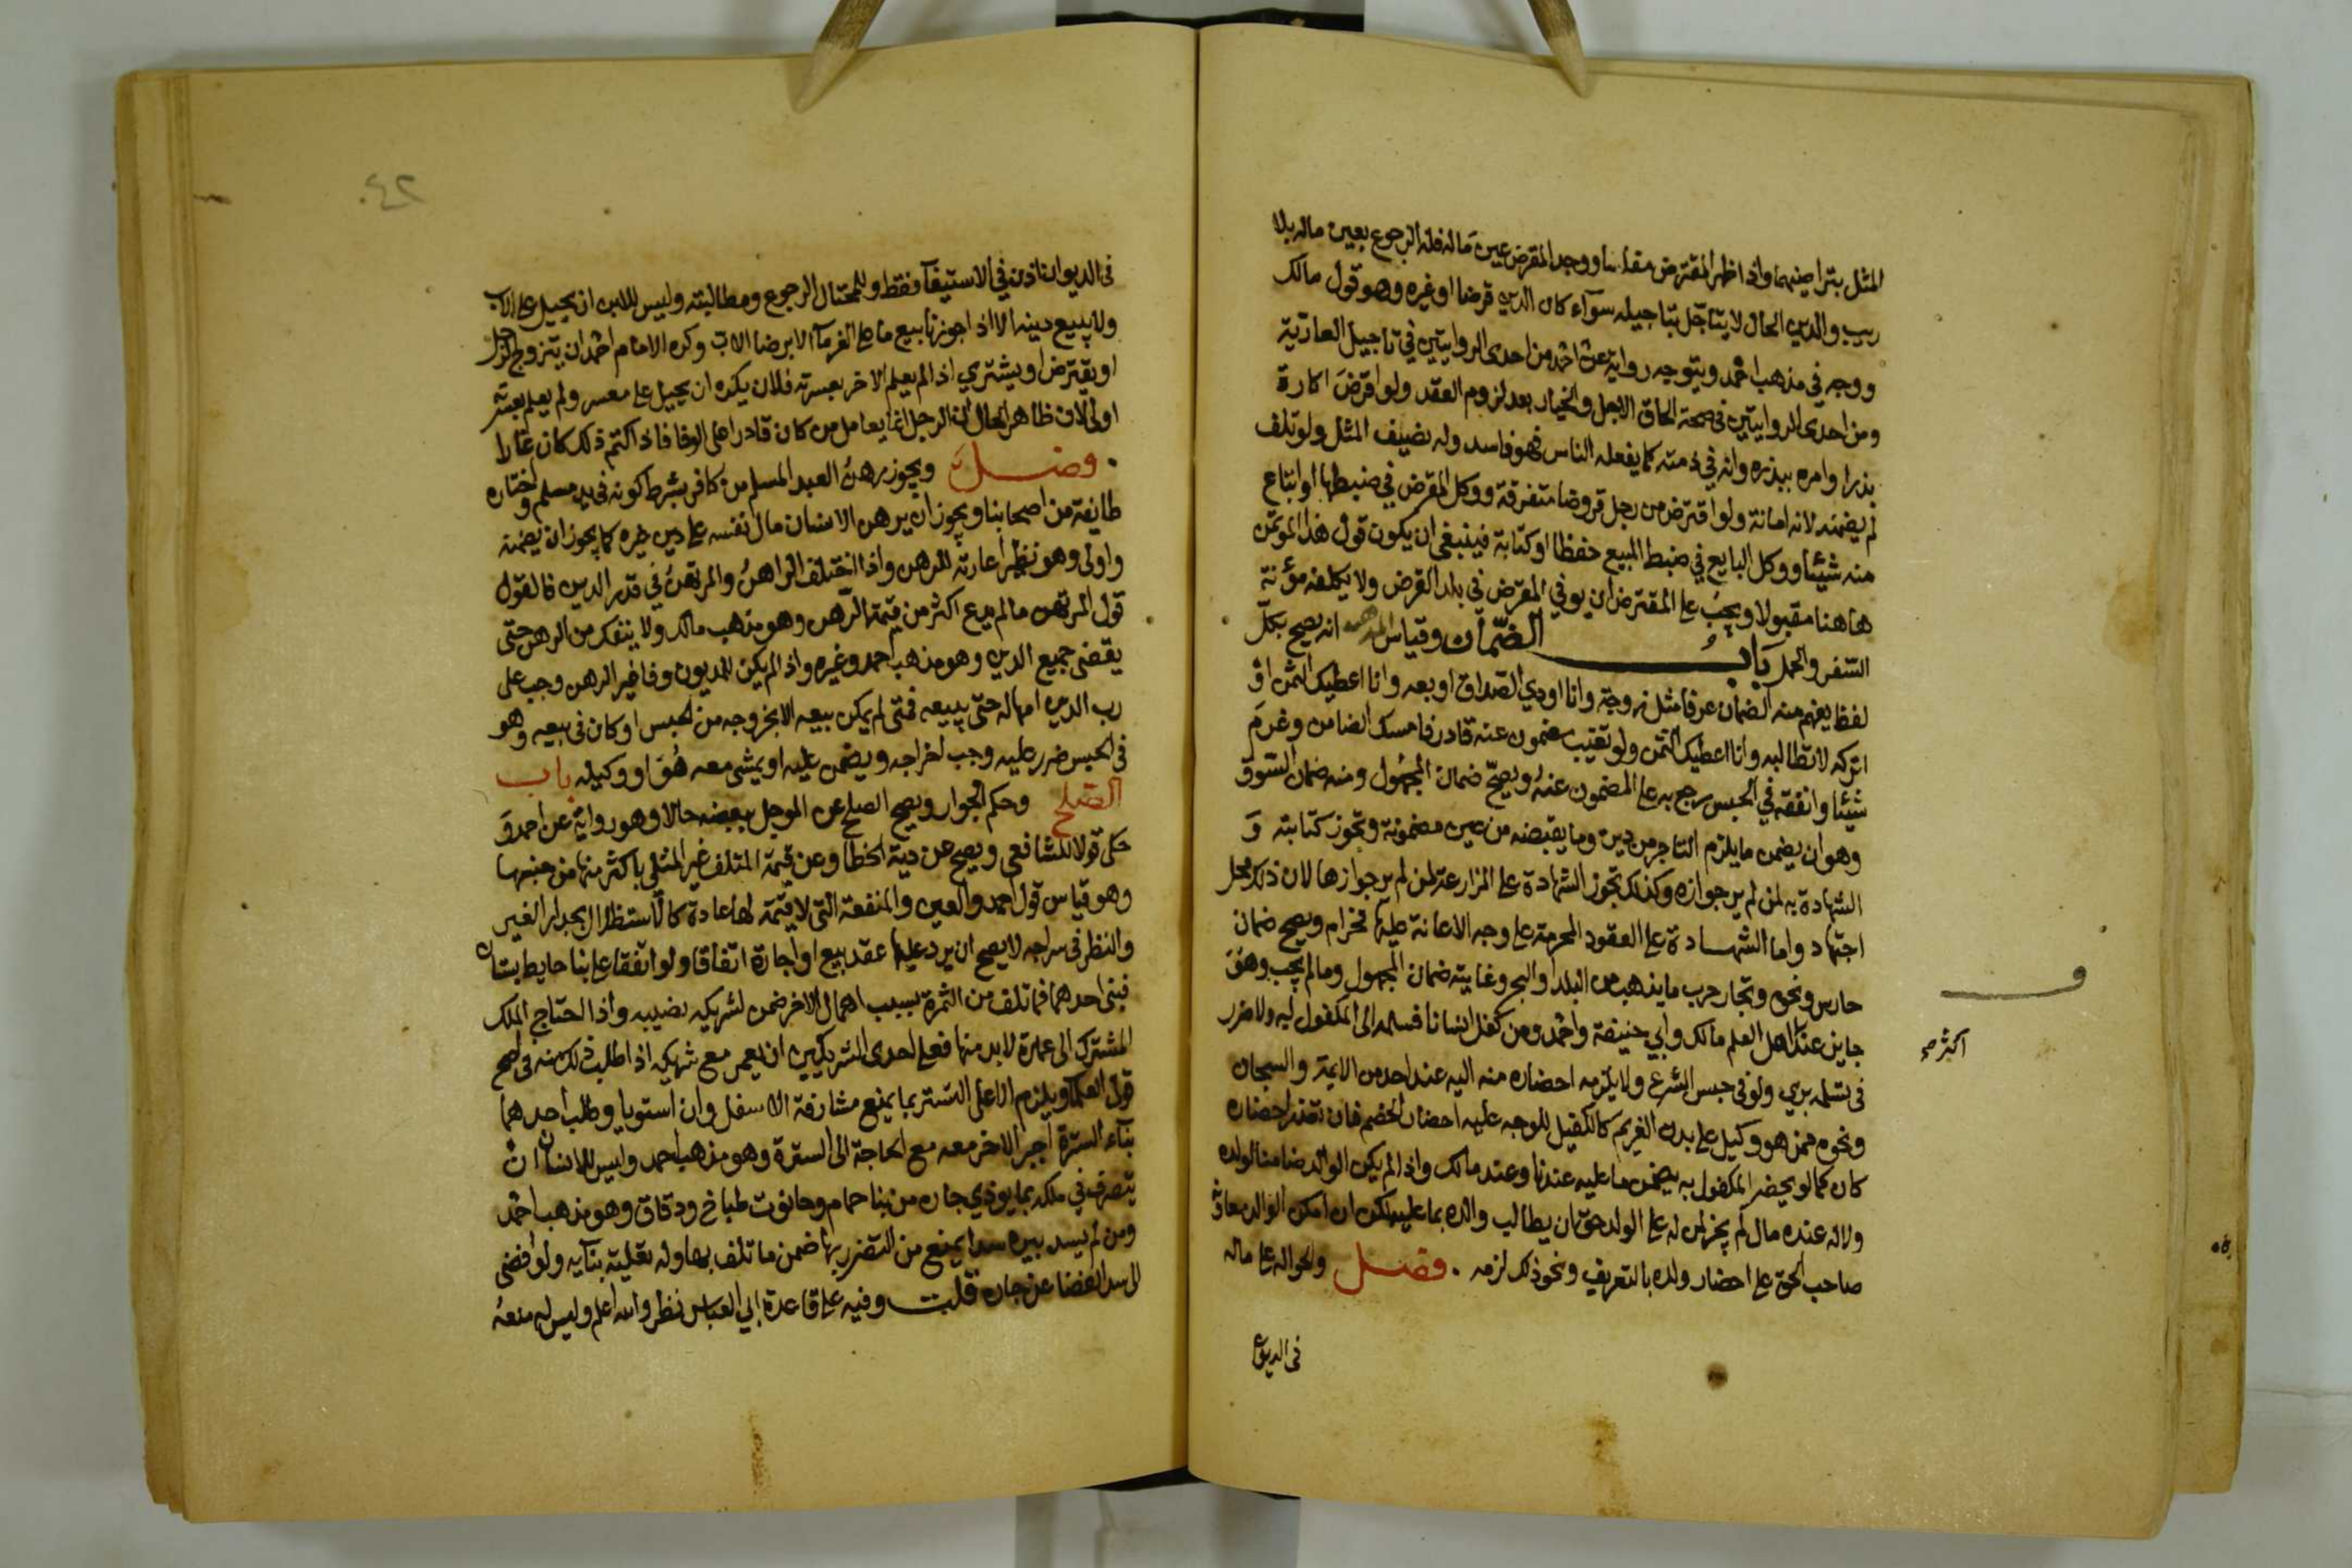 المثل بتراضيهما واذا ظهر المقترض مفلسا ووجد المقرض عين ماله فله الرجوع بعين ماله بلا
ريب والدين الحال لا يتاجل بتاجيله سوآء كان الدين قرضا او غيره وهو قول مالك
ووجه في مذهب احمد ويتوجه رواية عن احمد من احدى الروايتين في تاجيل العارية
ومن احدى الروايتين في صحة الحاق الاجل والخيار بعد لزوم العقد ولو اقرض اكارة
بذرا وامره ببذره وانه في ذمته كما يفعله الناس فهو فاسد وله نصيف المثل ولو تلف
لم يضمنه لانه امانة ولو اقترض من رجل قروضا متفرقة ووكل المقرض في ضبطها او ابتاع
منه شيئا ووكل البايع في ضبط المبيع حفظا او كتابة فينبغي ان يكون قول هذا الموتمن
هاهنا مقبولا ويجب على المقترض ان يوفي المقرض في بلد القرض ولا يكلفه مؤنة
السفر والحمل باب الضمان وقياس المذهب انه يصح بكل
لفظ يفهم منه الضمان عرفا مثل زوجة وانا اودي الصداق او بعه وانا اعطيك الثمن او
اتركه لا تطالبه وانا اعطيك الثمن ولو تغيب مضمون عنه قادر فامسك الضامن وغرم
شيئا وانفقه في الحبس رجع به على المضمون عنه ويصح ضمان المجهول ومنه ضمان السوق
وهو ان يضمن ما يلزم التاجر من دين وما يقبضه من عين مضمونة وتجوز كتابته و
الشهادة به لمن لم ير جوازه وكذلك تجوز الشهادة على المزارعة لمن لم ير جوازها لان ذلك محل
اجتهاد واما الشهادة على العقود المحرمة على وجه الاعانة عليها فحرام ويصح ضمان
حارس ونحوه وتجار حرب ما يذهب من البلد او البحر وغايته ضمان المجهول وما لم يجب وهو
جايز عند اهل العلم مالك وابي حنيفة واحمد ومن كفل انسانا فسلمه الى المكفول ليه ولا ضرر
اكثر صح
في تسلمه بري ولو في حبس الشرع ولا يلزمه احضاره منه اليه عند احد من الايمة والسجان
ونحوه ممن هو وكيل على بدن الغريم كالكفيل للوجه عليه احضار الخصم فان تعذر احضاره
كان كما لو يحضر المكفول به يضمن ما عليه عندنا وعند مالك واذا لم يكن الوالد ضامنا لولده
ولا له عنده مال لم يجز لمن له على الولد حق ان يطالب والده بما عليه لكن ان امكن الوالد معاونة
صاحب الحق على احضار ولده بالتعريف ونحو ذلك لزمه . فصل والحوالة على ماله
في الديوان
٤٢
في الديوان اذن في الاستيفآ فقط وللمحتال الرجوع ومطالبته وليس للابن ان يحيل على الاب
ولا يبيع دينه الا اذا جوزنا بيع ما على الغرمآ الا برضا الاب وكره الامام احمد ان يتزوج الرجل
او يقترض او يشتري اذا لم يعلم الاخر بعسرته فلان يكره ان يحيل على معسر ولم يعلم بعسرته
اولى لان ظاهر الحال ان الرجل انما يعامل من كان قادرا على الوفا فاذا كتم ذلك كان غارا
. فصل ويجوز رهن العبد المسلم من كافر بشرط كونه في يد مسلم واختاره
طايفة من اصحابنا ويجوز ان يرهن الانسان مال نفسه على دين غيره كما يجوز ان يضمنه
واولى وهو نظير اعارته للرهن واذا اختلف الراهن والمرتهن في قدر الدين فالقول
قول المرتهن ما لم يدع اكثر من قيمة الرهن وهو مذهب مالك ولا ينفك من الرهن حتى
يقضي جميع الدين وهو مذهب احمد وغيره واذا لم يكن للمديون وفا غير الرهن وجب على
رب الدين امهاله حتى يبيعه فمتى لم يمكن بيعه الا بخروجه من الحبس او كان في بيعه وهو
في الحبس ضرر عليه وجب اخراجه ويضمن عليه او يمشي معه هو او وكيله باب
الصلح وحكم الجوار ويصح الصلح عن الموجل ببعضه حالا وهو رواية عن احمد و
حكى قولا للشافعي ويصح عن دية الخطا وعن قيمة المتلف غير المثلي باكثر منها من جنسها
وهو قياس قول احمد والعين والمنفعة التي لا قيمة لها عادة كالاستظلال بجدار الغير
والنظر في سراجه لا يصح ان يرد عليها عقد بيع او اجارة اتفاقا ولو اتفقا على بنا حايط بستان
فبنى احدهما فما تلف من الثمرة بسبب اهمال الاخر ضمن لشريكه نصيبه واذا احتاج الملك
المشترك الى عمارة لا بد منها فعلى احدى الشريكين ان يعمر مع شريكه اذا طلب ذلك منه في اصح
قولي العلمآ ويلزم الاعلى التستر بما يمنع مشارفة الاسفل وان استويا وطلب احدهما
بنآء السترة اجبر الاخر معه مع الحاجة الى السترة وهو مذهب احمد وليس للانسان ان
يتصرف في ملكه بما يوذي جاره من بنا حمام وحانوت طباخ ودقاق وهو مذهب احمد
ومن لم يسد بيره سدا يمنع من التضرر بها ضمن ما تلف بها وله تعلية بنآيه ولو افضى
الى سد الفضا عن جاره قلت وفيه على قاعدة ابي العباس نظر والله اعلم وليس له منعه